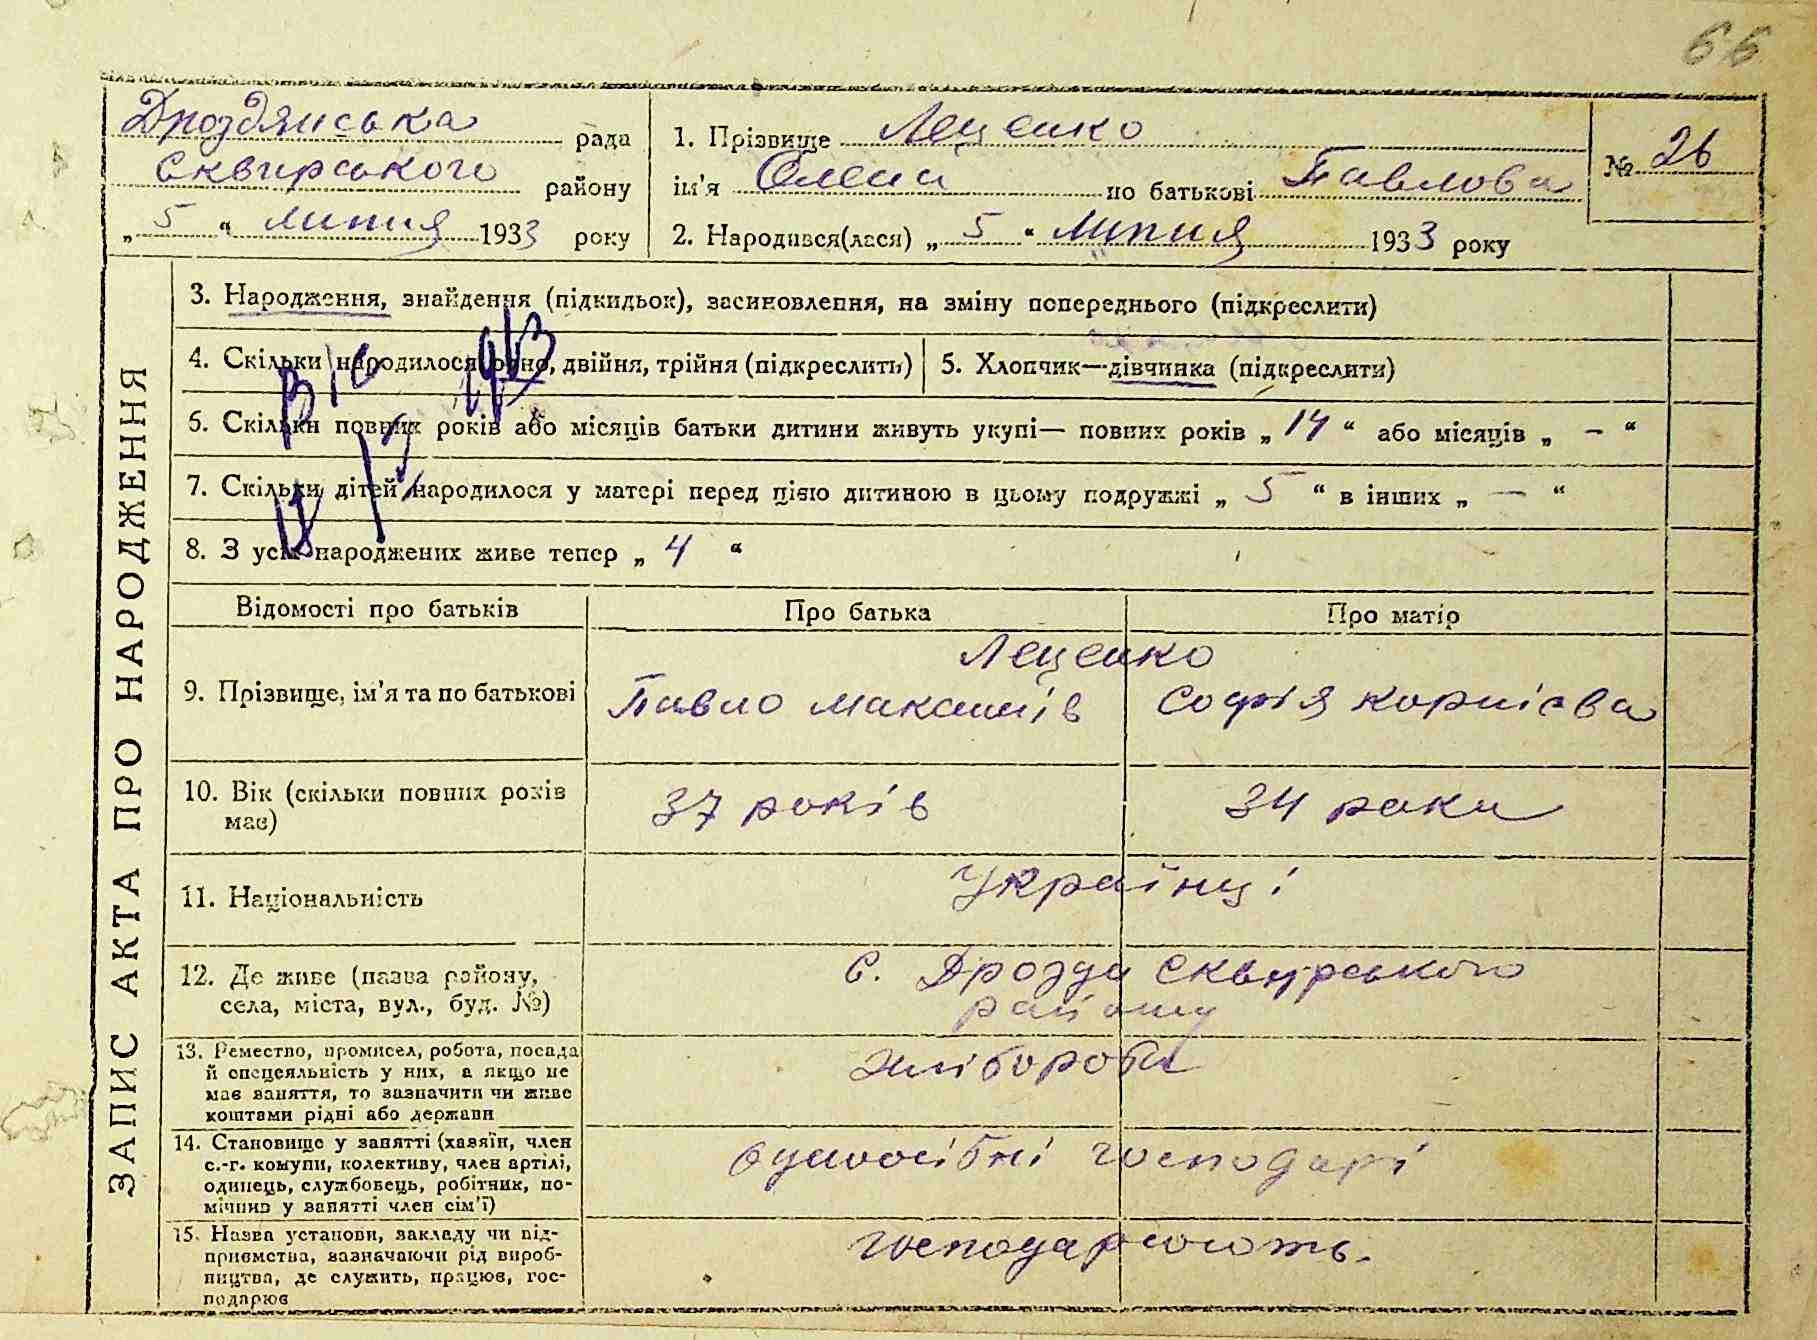 66
Дроздянська рада
Сквирського району
„ 5 “ липня 1933 року
1. Прізвище Лещенко
ім'я Олена по батькові Павлова
2. Народився(лася) „ 5 “ липня 1933 року
№ 26
ЗАПИС АКТА ПРО НАРОДЖЕННЯ
3. Народження, знайдення (підкидьок), засиновлення, на зміну попереднього (підкреслити)
4. Скільки народилося: одно, двійня, трійня (підкреслить)
5. Хлопчик—дівчинка (підкреслити)
6. Скільки повних років або місяців батьки дитини живуть укупі— повних років „ 14 “ або місяців „ - “
7. Скільки дітей народилося у матері перед цією дитиною в цьому подружжі „ 5 “ в інших „ — “
8. З усіх народжених живе тепер „ 4 “
Відомості про батьків
Про батька
Про матір
9. Прізвище, ім'я та по батькові
Лещенко
Павло Максимів
Софія Корнієва
10. Вік (скільки повних років
має)
37 років
34 роки
11. Національність
Українці
12. Де живе (назва району,
села, міста, вул., буд. №)
с. Дрозди Сквирського
району
13. Ремество, промисел, робота, посада
й спецеяльність у них, а якщо не
має заняття, то зазначити чи живе
коштами рідні або держави
хлібороби
14. Становище у занятті (хазяїн, член
с.-г. комуни, колективу, член артілі,
одинець, службовець, робітник, по-
мічнив у занятті член сім'ї)
одноосібні господарі
15. Назва установи, закладу чи під-
приємства, зазначаючи рід вироб-
ництва, де служить, працює, гос-
подарює
господарюють.